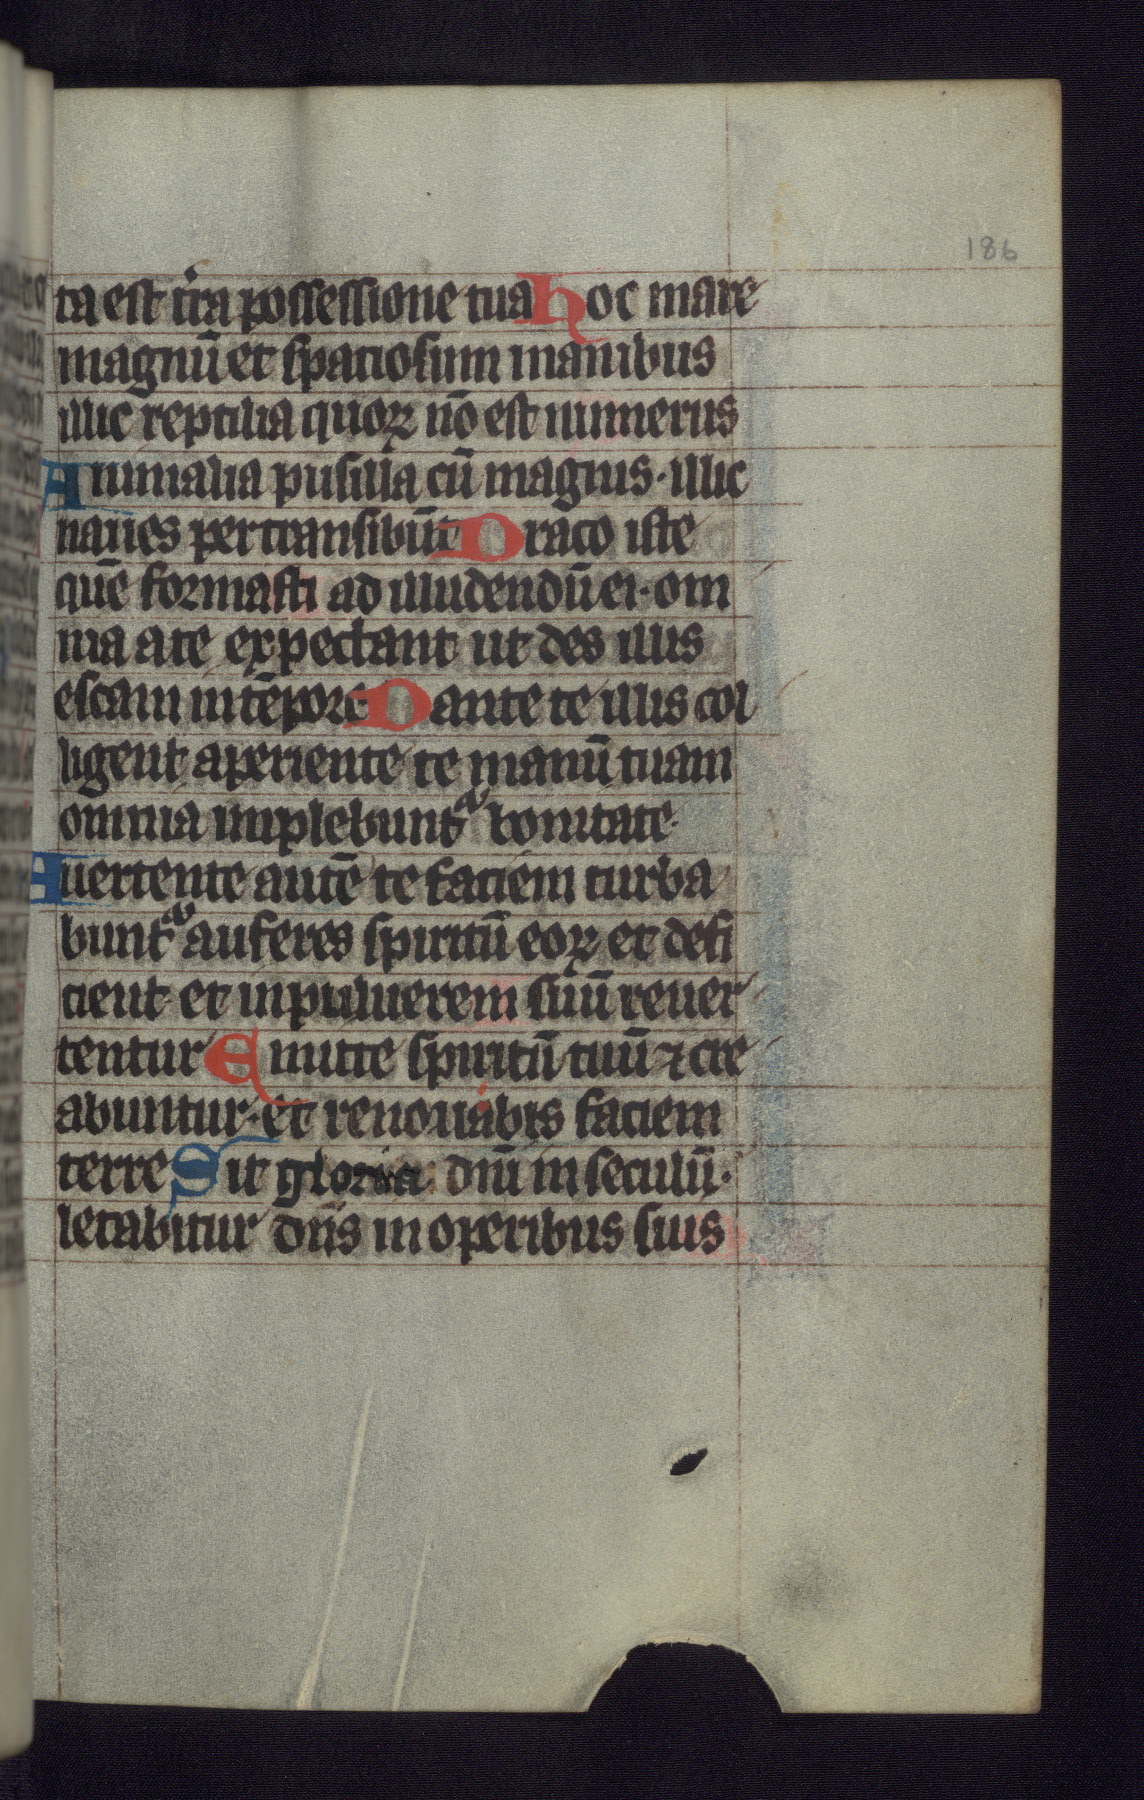 186
ta est t͛ra possessione tua Hoc mare
magnū et spatiosum manibus
illic reptilia quoꝝ nō est numerus
Animalia pusilla cū magnis · illic
naues pertransibūt Draco iste
quē formasti ad illudendū ei · om
nia a te expectant ut des illis
escam in tēpore Dante te illis col
ligent aperiente te manū tuam
omnia implebunt᷑ bonitate ·
Auertente autē te faciem turba
bunt᷑ auferes spiritū eoꝝ et defi
cient et in puluerem suū reuer
tentur Emitte spiritū tuū ⁊ cre
abuntur · et renouabis faciem
terre Sit gloria dn̄i in seculū ·
letabitur dn̄s in operibus suis